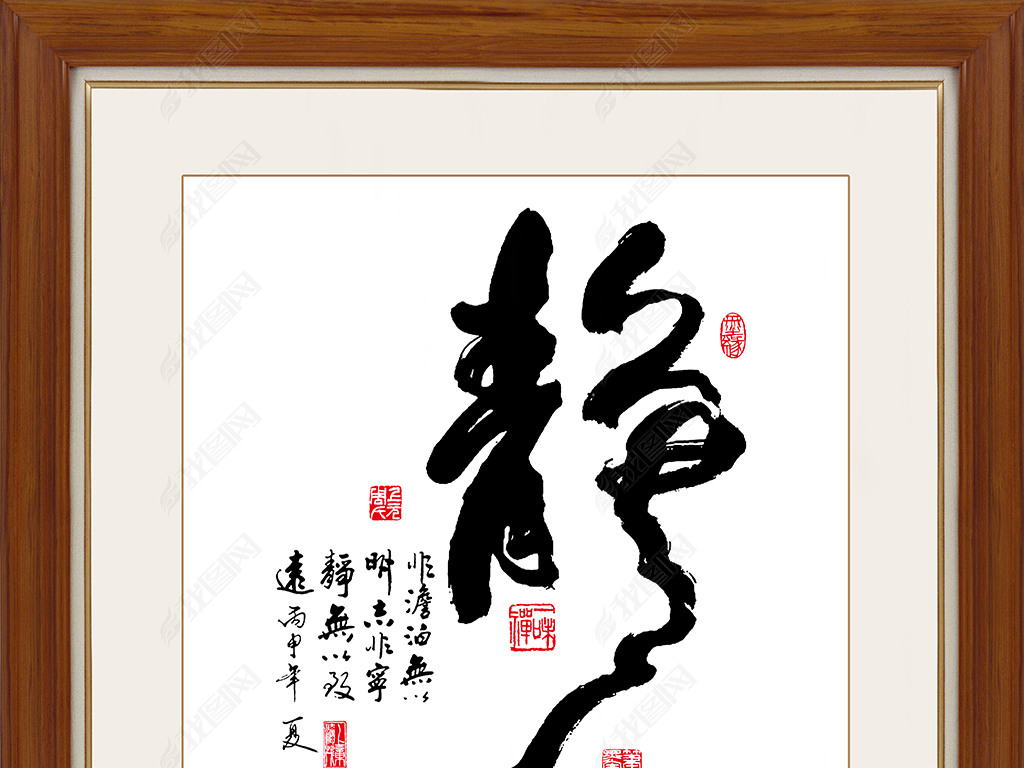 靜
非澹泊無以
明志非寧
靜無以致
遠丙申年夏
一味禪